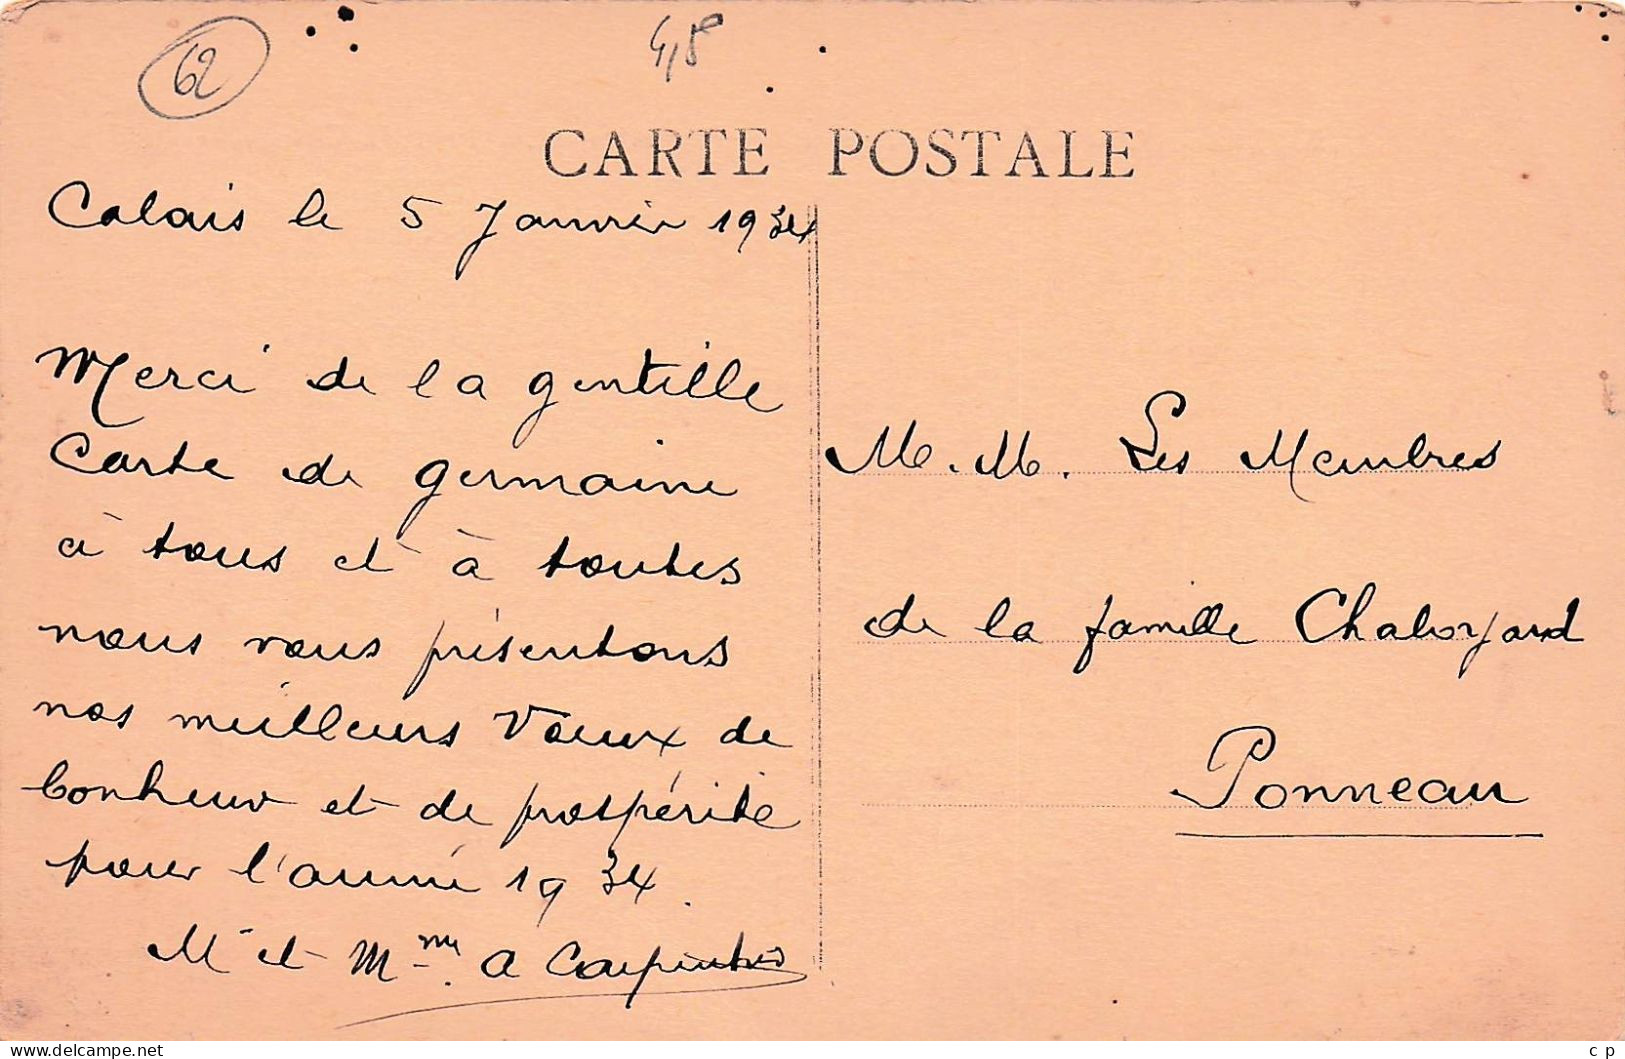 62
4,5
CARTE POSTALE
Calais le 5 Janvier 1934
Merci de la gentille
Carte de germaine
à tous et à toutes
nous vous présentons
nos meilleurs Voeux de
bonheur et de prospérité
pour l'année 1934.
M et Mme A Carpentier
M.M. Les Membres
de la famille Chaboryard
Ponneau
www.delcampe.net
c p